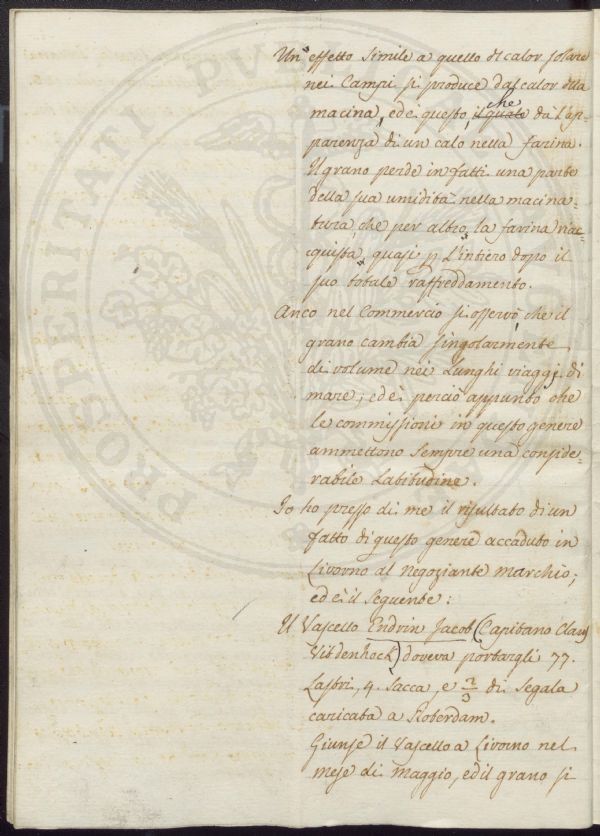 Un effetto simile a quello del calor solare
nei Campi si produce dal calor della
macina, ed è questo, il quale che dà l'ap-
parenza di un calo nella farina.
Il grano perde in fatti una parte
della sua umidità nella macina-
tura, che per altro, la farina riac-
quista, quasi p. l'intiero dopo il
suo totale raffreddamento.
Anco nel Commercio si osservò, che il
grano cambia singolarmente
di volume nei Lunghi viaggi di
mare, ed è perciò appunto che
le commissioni in questo genere
ammettono sempre una conside-
rabile Latitudine.
Io ho presso di me il risultato di un
fatto di questo genere accaduto in
Livorno al Negoziante Marchio;
ed è il seguente:
Il Vascello Endrin Jacob (Capitano Clau
Vitdenhock) doveva portargli 77.
Lastri, 4. Sacca, e 2/3 di Segala
caricata a Roterdam.
Giunse il Vascello a Livorno nel
mese di Maggio, ed il grano si
PROSPERITATI PUBLICAE